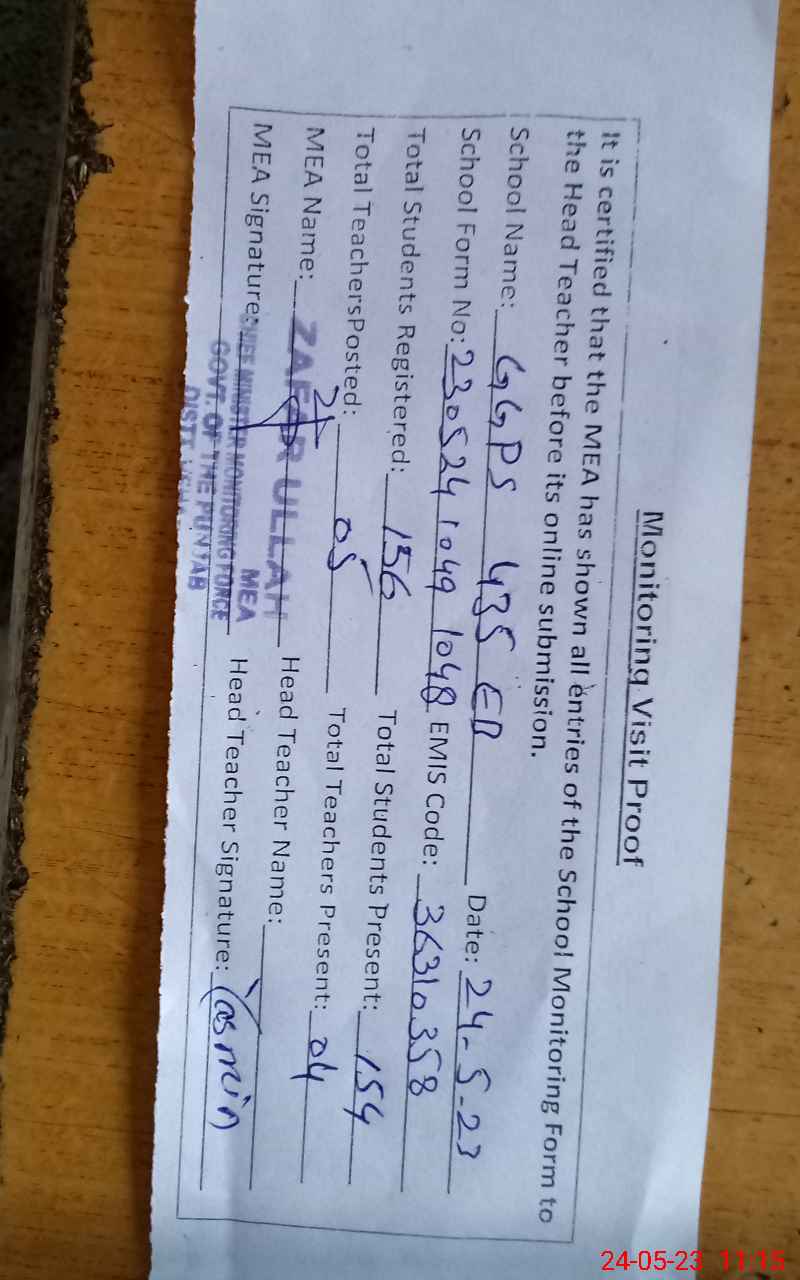 Monitoring Visit Proof
It is certified that the MEA has shown all entries of the School Monitoring Form to
the Head Teacher before its online submission.
School Name: GGPS 435 EB Date: 24-5-23
School Form No: 23052410491048 EMIS Code: 36310358
Total Students Registered: 156 Total Students Present: 154
Total TeachersPosted: 05 Total Teachers Present: 04
MEA Name: ZAFAR ULLAH Head Teacher Name:
MEA
MEA Signature: Head Teacher Signature: Yasmin
CHIEF MINISTER MONITORING FORCE
GOVT. OF THE PUNJAB
DISTT.
24-05-23 11:15